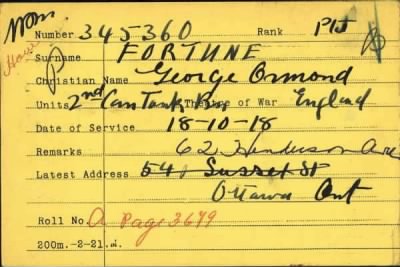 Wom
Number 345360 Rank Pte B
Surname FORTUNE
Christian Name George Ormond
Units 2nd Can Tank Bn Theatre of War England
Date of Service 18-10-18
Remarks 62 Henderson Ave
Latest Address 541 Sussex St
Ottawa Ont
Roll No. A Page 3679
200m.-2-21.